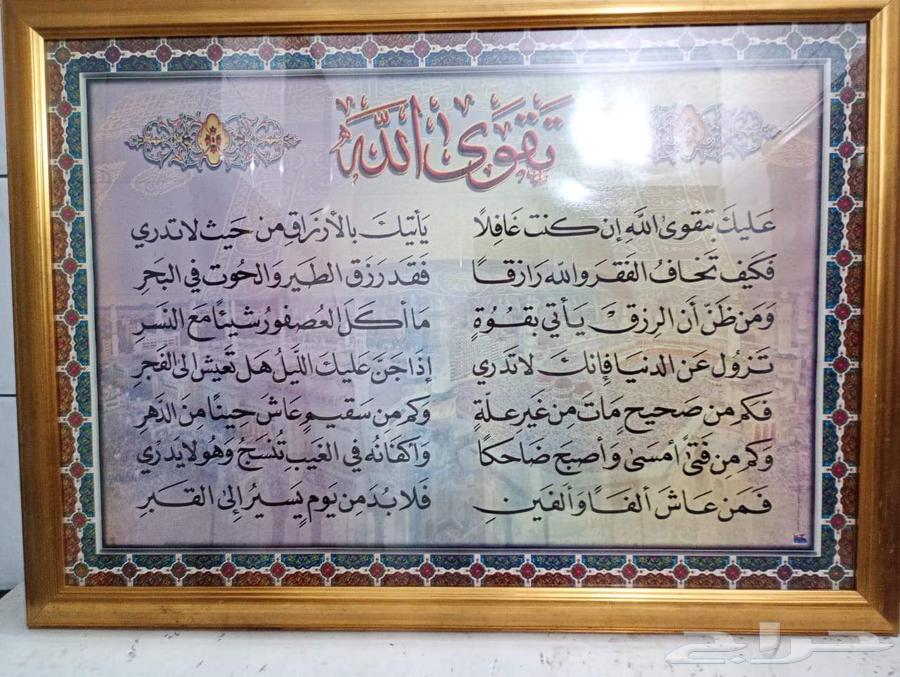 تقوى الله
عليك بتقوى الله إن كنت غافلاً يأتيك بالأرزاق من حيث لا تدري
فكيف تخاف الفقر والله رازقا فقد رزق الطير والحوت في البحر
ومن ظن أن الرزق يأتي بقوةٍ ما أكل العصفور شيئاً مع النسر
تزول عن الدنيا فإنك لا تدري إذا جن عليك الليل هل تعيش الى الفجر
فكم من صحيح مات من غير علة وكم من سقيم عاش حيناً من الدهر
وكم من فتى أمسى وأصبح ضاحكا وأكفانه في الغيب تنسج وهو لا يدري
فمن عاش ألفاً وألفين فلا بد من يوم يسير إلى القبر
حراج